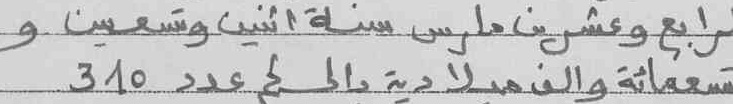 لرابع وعشرين مارس سنة اثنين وتسعين و
تسعمائة والف ميلادية عدد 310